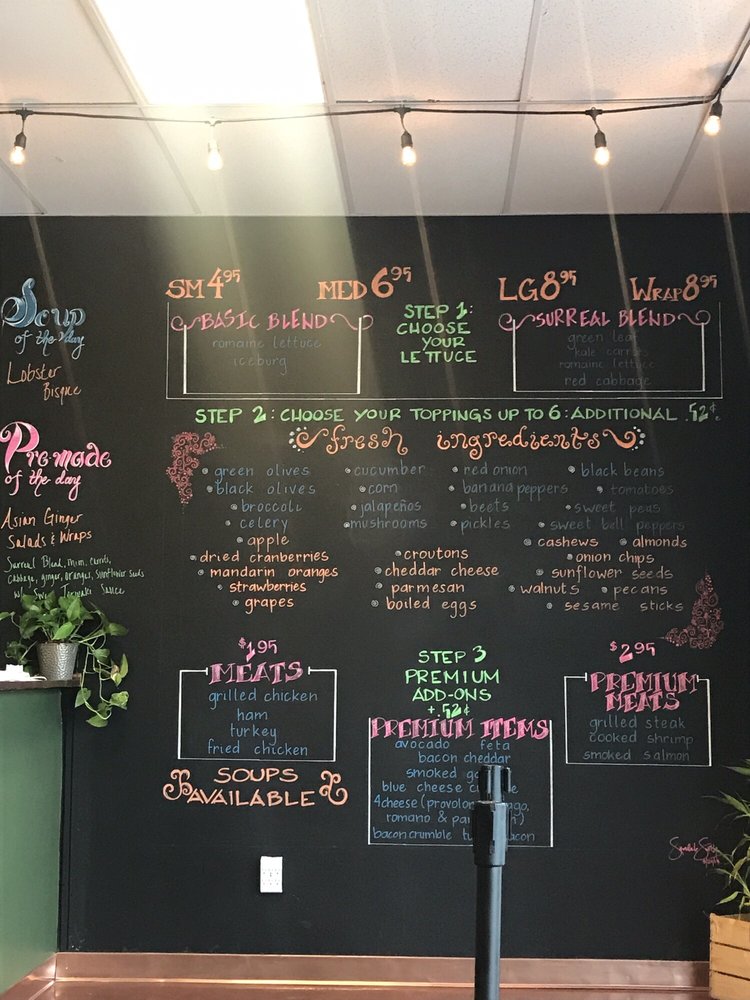 SM 4.95 MED 6.95 LG 8.95 WRAP 8.95
BASIC BLEND
romaine lettuce
iceburg
STEP 1:
CHOOSE
YOUR
LETTUCE
SURREAL BLEND
green leaf
kale carrots
romaine lettuce
red cabbage
Soup
of the day
Lobster
Bisque
STEP 2: CHOOSE YOUR TOPPINGS UP TO 6: ADDITIONAL .52¢
fresh ingredients
green olives
black olives
broccoli
celery
apple
dried cranberries
mandarin oranges
strawberries
grapes
cucumber
corn
jalapeños
mushrooms
red onion
banana peppers
beets
pickles
croutons
cheddar cheese
parmesan
boiled eggs
black beans
tomatoes
sweet peas
sweet bell peppers
cashews almonds
onion chips
sunflower seeds
walnuts pecans
sesame sticks
Pre-made
of the day
Asian Ginger
Salads & Wraps
Surreal Blend, carrots,
cabbage, ginger, oranges, sunflower seeds
w/ Sweet Teriyaki Sauce
$1.95
MEATS
grilled chicken
ham
turkey
fried chicken
SOUPS
AVAILABLE
STEP 3
PREMIUM
ADD-ONS
+.52¢
PREMIUM ITEMS
avocado feta
bacon cheddar
smoked
blue cheese
4 cheese (
romano &
bacon crumble
$2.95
PREMIUM
MEATS
grilled steak
cooked shrimp
smoked salmon